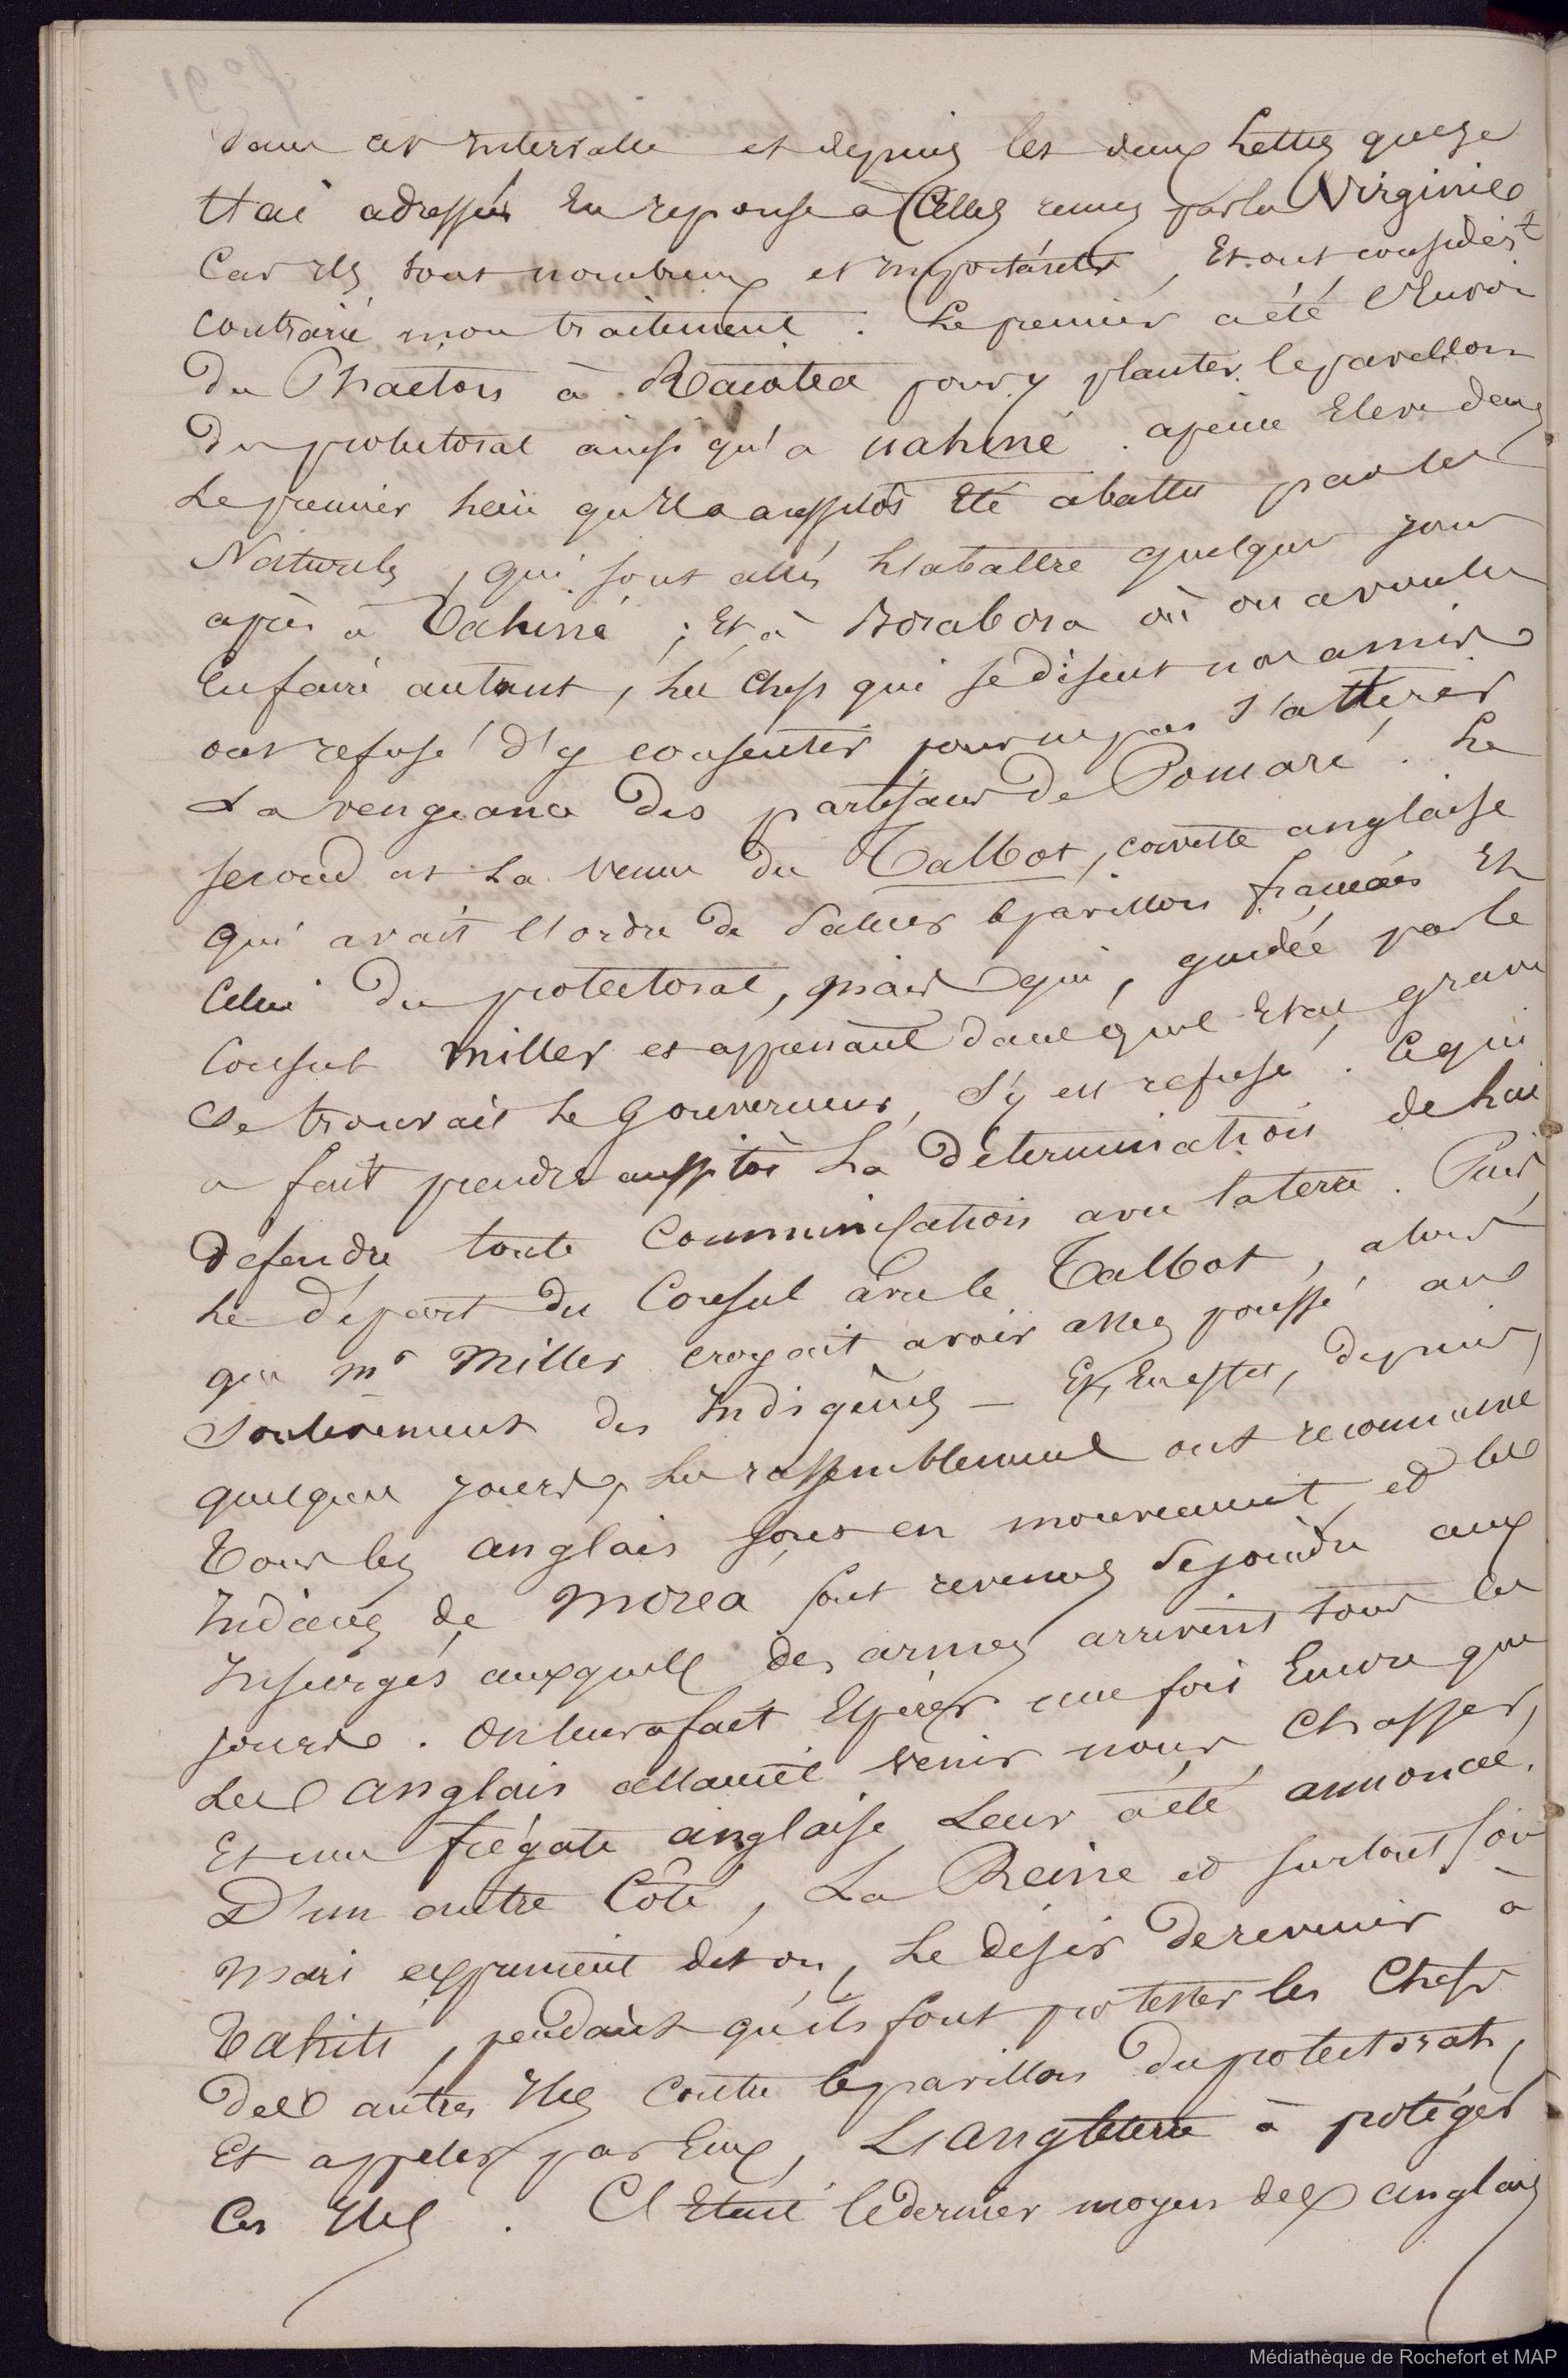 dans cet intervalle et depuis les deux Lettres que je
t'ai adressées En reponse à Celles reçues par la Virginie
Car Ils sont nombreux et importants, Et ont considért
contrarié mon traitement. Le premier a été l'Envoi
Du Phaeton à Raiatea pour y planter le pavillon
Du protectorat ainsi qu'a uahiné. apeine Elevé dans
Le premier lieu qu'Il a aussitôt Eté abattu par les
Naturels, qui sont allés L'abattre quelques jours
après à Uahiné; Et à Borabora où on a voulu
En faire autant, Les Chefs qui se disent nos amis
ont refusé d'y consentir pour ne pas s'attirer
La vengeance Des partisans De Pomaré. Le
second est La venue du Talbot, corvette anglaise
qui avait l'ordre De Saluer le pavillon français Et
Celui Du protectorat, mais qui, guidée par le
Consul Miller et apprenant dans quel Etat grave
Se trouvait Le Gouverneur, S'y est refusé. Ce qui
a fait prendre aussitôt La Détermination de Lui
Defendre toute Communication avec la terre. Puis
Le Départ Du Consul avec le Talbot, alors
que mr Miller croyait avoir assez poussé au
Soulevement des Indigènes – Et, En effet, depuis
quelques jours, Les rassemblement ont recommencé
Tous les anglais sont en mouvement, et les
Indiens de Morea sont revenus Se joindre aux
Insurgés auxquels des armes arrivent tous les
jours. On leur a fait Espérer une fois Encore que
Les anglais allaient venir nous Chasser,
Et une frégate anglaise Leur a été annoncée.
D'un autre Côté, La Reine et surtout son
Mari expriment dit on, Le désir De revenir à
Tahiti, pendant qu'ils font protester les Chefs
Des autres Iles Contre le pavillon Du protectorat,
Et appeler par Eux, L'angleterre à protéger
Ces Iles. C'Etait le dernier moyen des anglais
Médiathèque de Rochefort et MAP